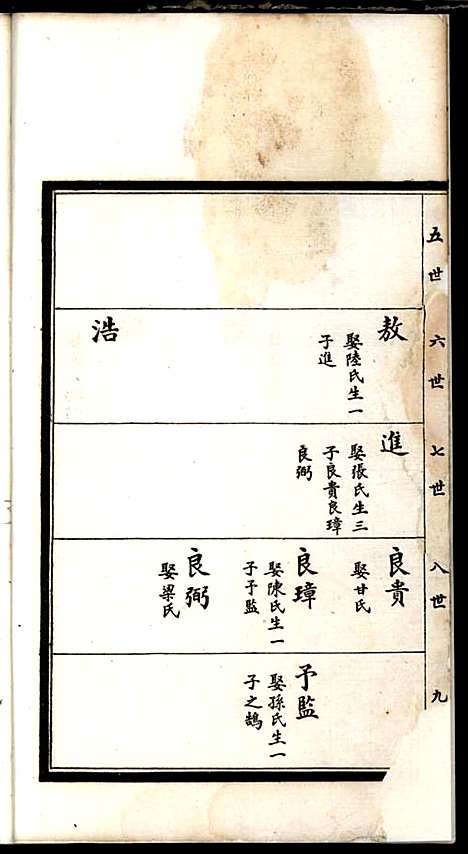 五世
六世
敖
娶陸氏生一
子進
浩
七世
進
娶張氏生三
子良貴良璋
良弼
八世
良貴
娶甘氏
良璋
娶陳氏生一
子予監
良弼
娶梁氏
九
予監
娶孫氏生一
子之鵠